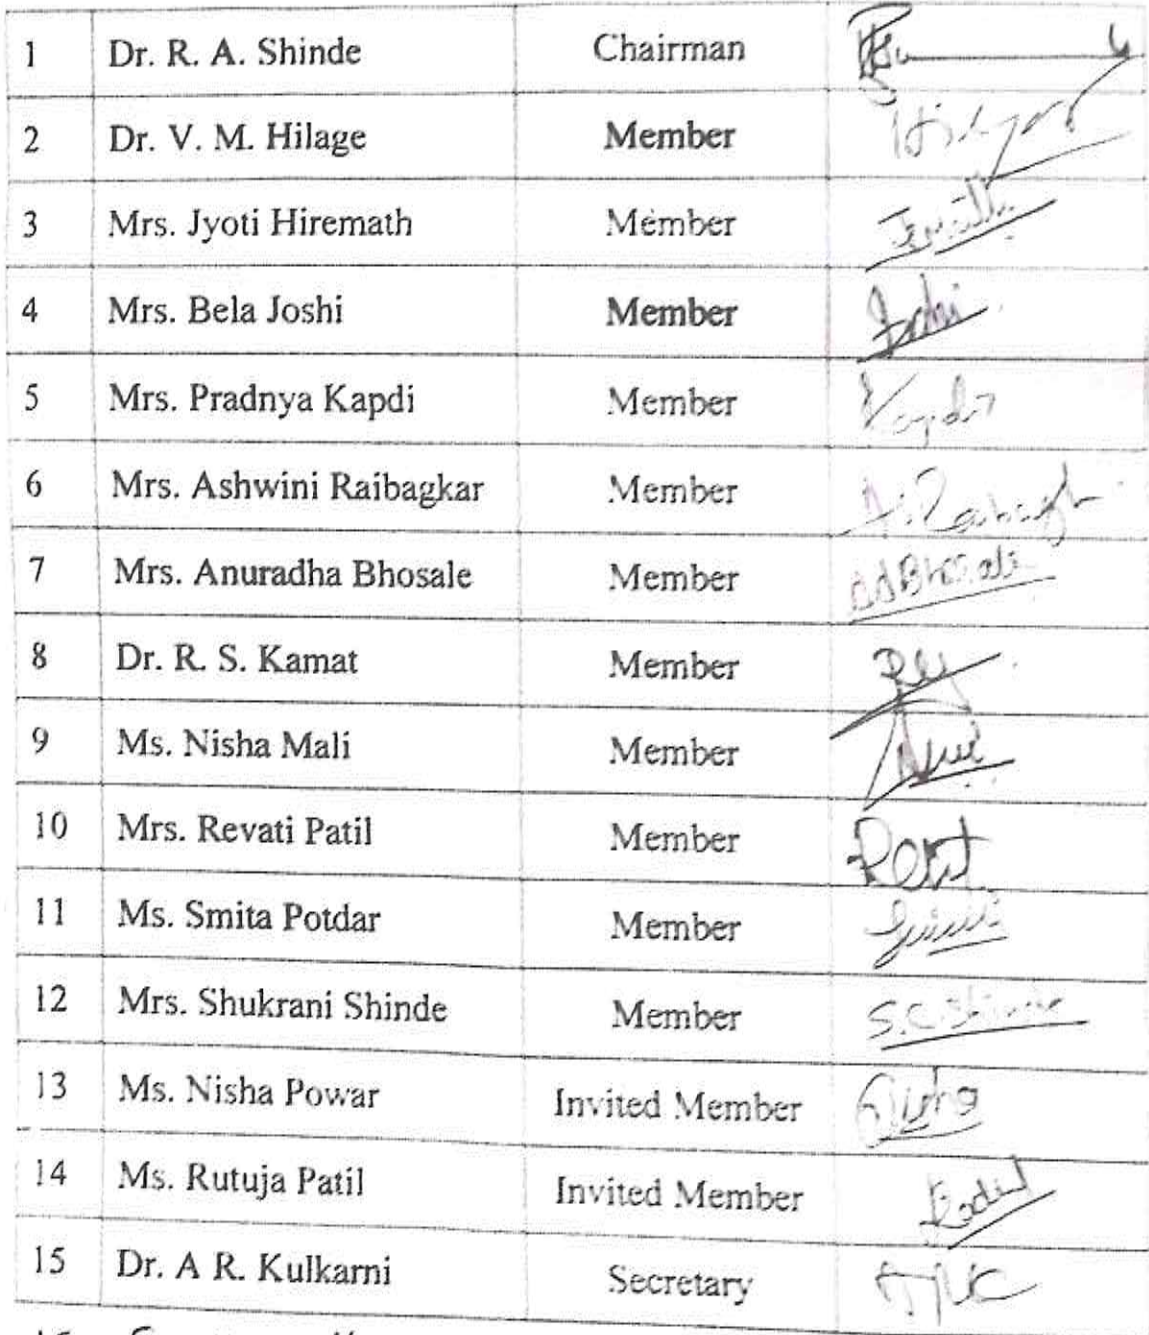 1 Dr. R. A. Shinde Chairman
2 Dr. V. M. Hilage Member
3 Mrs. Jyoti Hiremath Member
4 Mrs. Bela Joshi Member Joshi
5 Mrs. Pradnya Kapdi Member Kapdi
6 Mrs. Ashwini Raibagkar Member
7 Mrs. Anuradha Bhosale Member AABhosale
8 Dr. R. S. Kamat Member
9 Ms. Nisha Mali Member
10 Mrs. Revati Patil Member
11 Ms. Smita Potdar Member
12 Mrs. Shukrani Shinde Member S.C.Shinde
13 Ms. Nisha Powar Invited Member
14 Ms. Rutuja Patil Invited Member
15 Dr. A R. Kulkarni Secretary